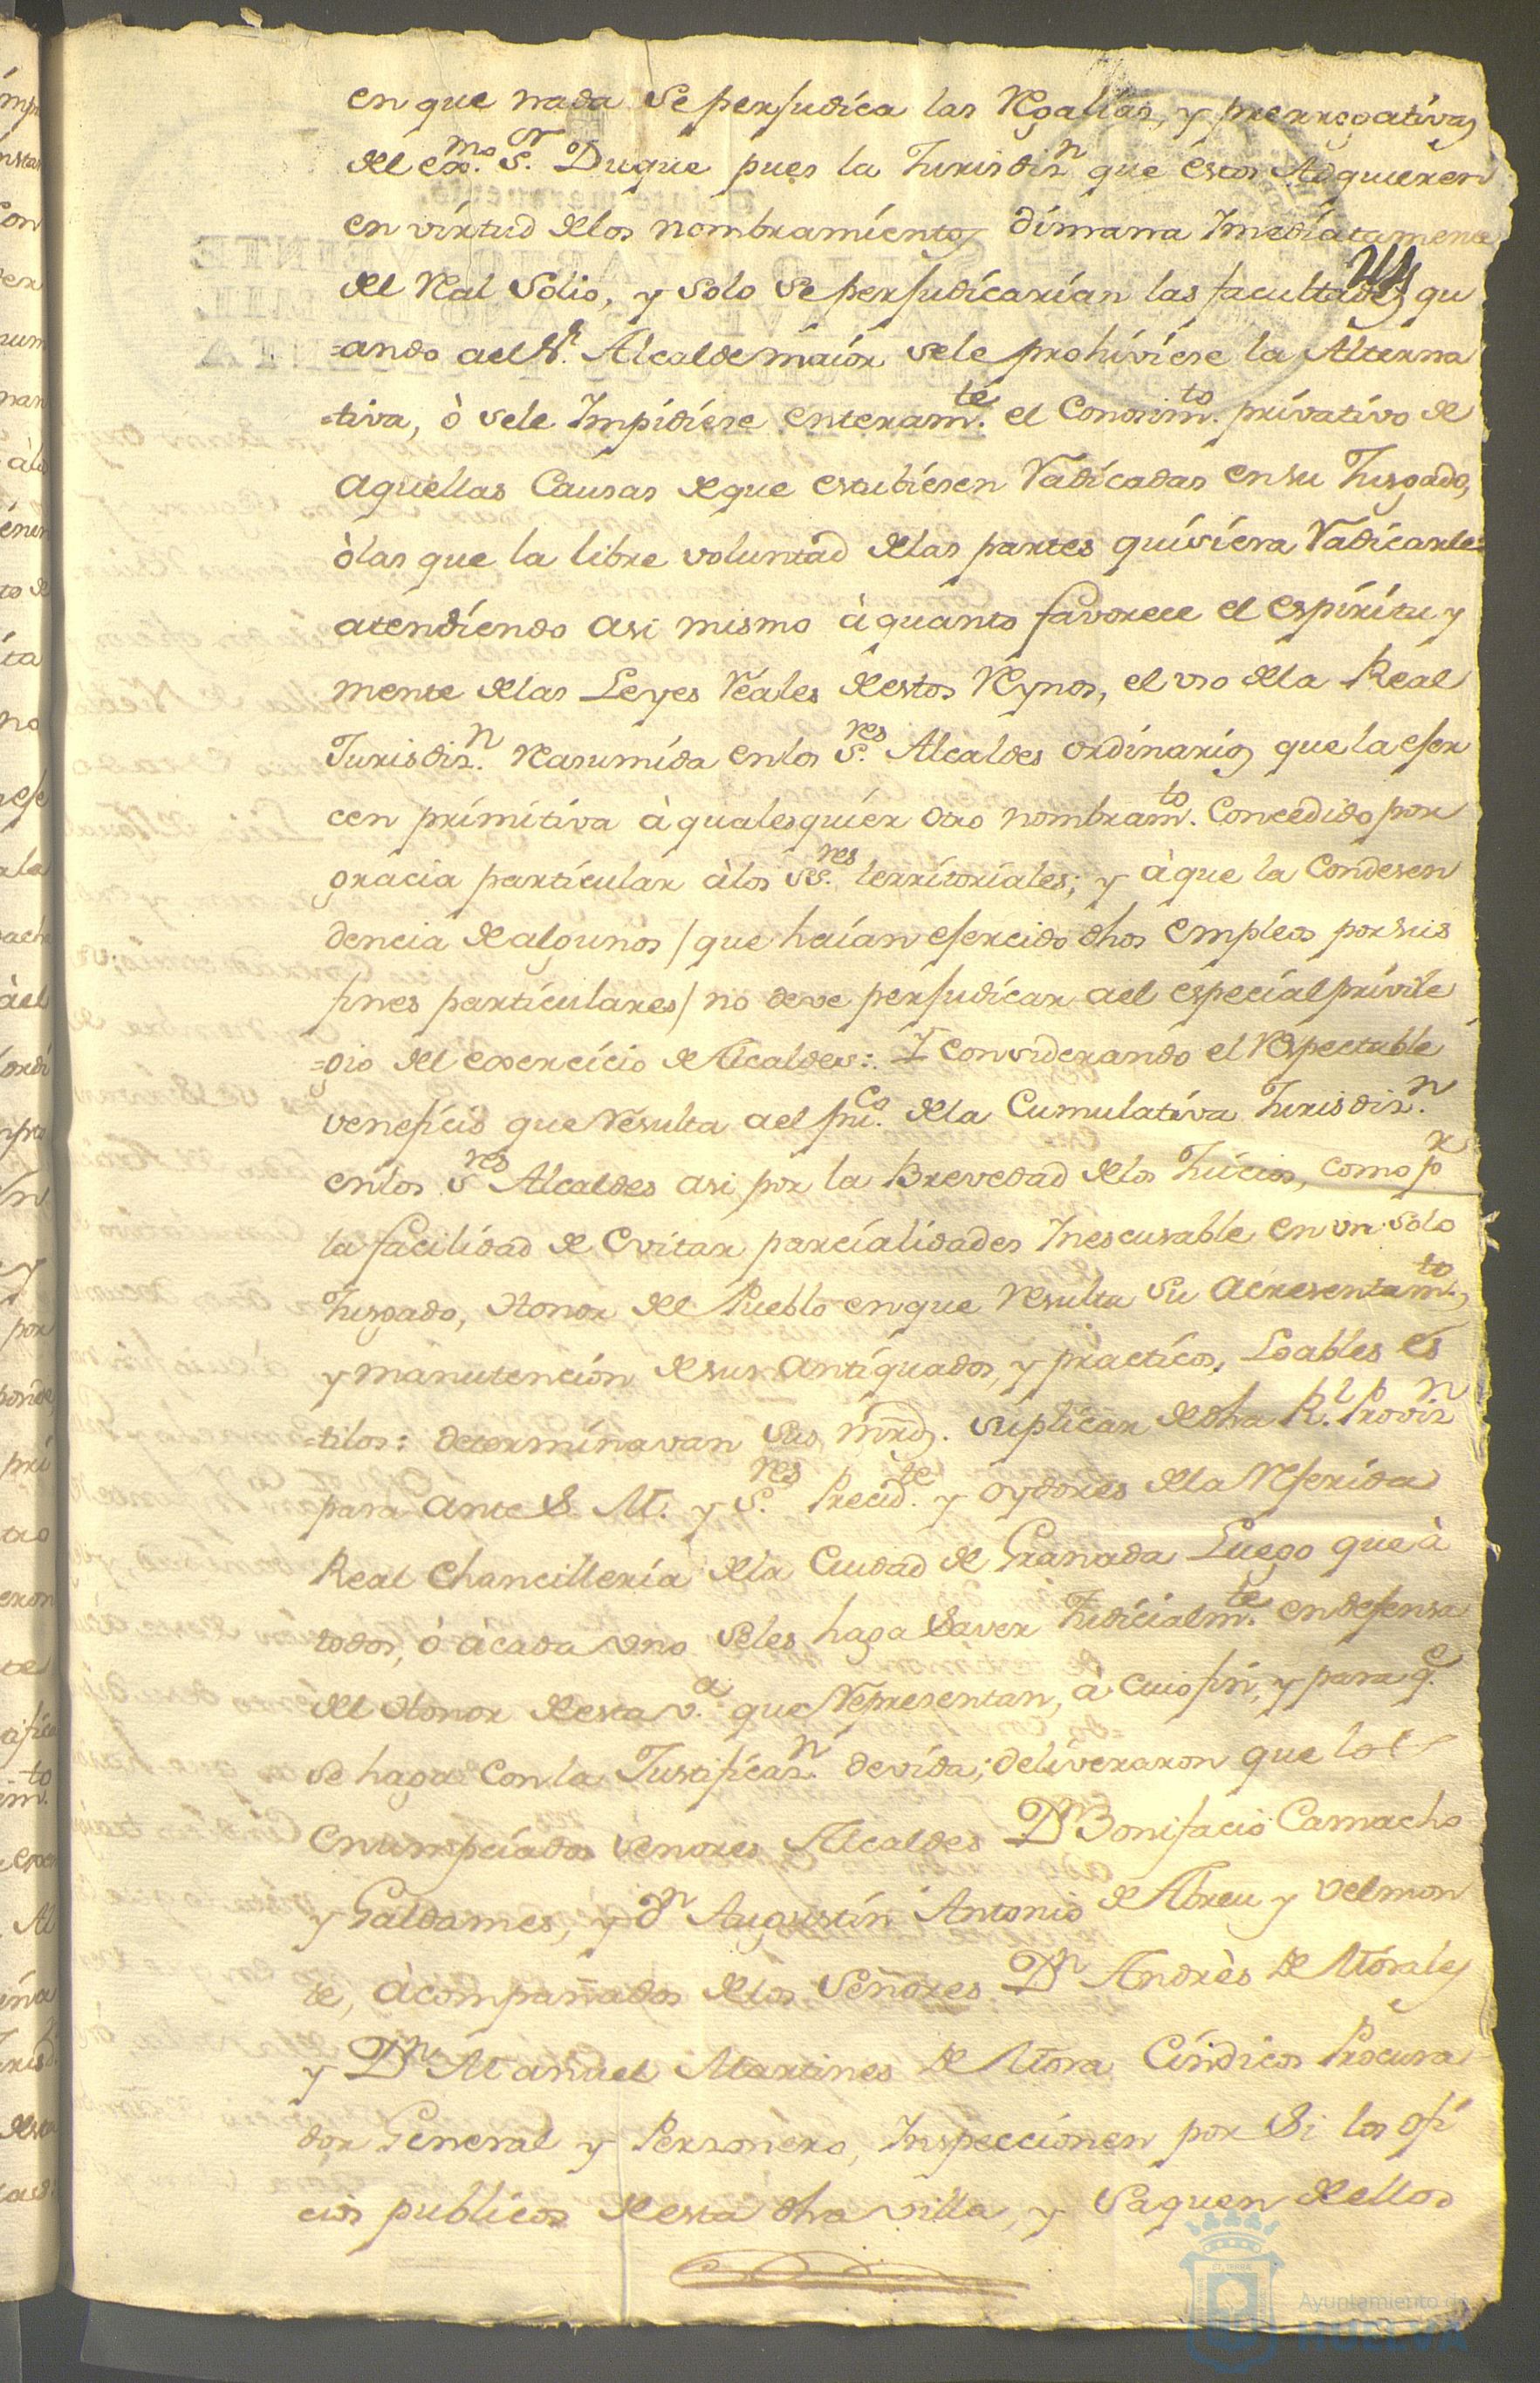 en que nada se perjudica las Regalias, y prerrogativas
del exmo. Sr. Duque pues la Jurisdizn que estos Adquieren
en virtud delos nombramientos dimana Inmediatamente
del Real Solio, y solo se perjudicarían las facultades qu
=ando ael Sr. Alcalde maior sele prohiviese la Alterna
=tiva, ò sele Impidiese enteramte. el Conosimto. privativo de
aquellas Causas deque estubiesen Radicadas ensu Jusgado,
òlas que la libre voluntad delas partes quisiera Radicarle=
atendiendo asi mismo à quanto favorece el espiritu y
mente delas Leyes Reales destos Reynos, el uso dela Real
Jurisdizn. Reasumida enlos Sres. Alcaldes ordinarios que la ejer
cen primitiva à qualesquier otro nombramto. Concedido por
gracia particular àlos SSres. territoriales; y àque la Condesen
dencia de algunos / que haian ejercido dhos empleos porsus
fines particulares / no deve perjudicar ael especial privile
=gio del exercicio de Alcaldes: Y considerando el Respectable
veneficio que Resulta ael puco. dela Cumulativa Jurisdizn.
enlos Sres Alcaldes asi por la Brevedad delos Juicios, como pr
la facilidad de evitar parcialidades Inescusable en un solo
Jusgado, Honor del Pueblo enque Resulta su acresentamto.,
y manutencion desus antiguados, y practicos, Loables es
=tilos: determinavan sus mrds. suplicar de dha Rl. Provizn
para ante S. M. y Sres. Precidte. y oydores dela Referida
Real Chancilleria dela Ciudad de Granada Luego que à
todos, ò àcada uno seles haga saver Judicialmte. en defensa
del Honor desta va. que Representan, à cuio fin, y para qe.
se haga con la Justificazn. devida; deliveraron que los
enumpciados Señores Alcaldes Dn Bonifacio Camacho
y Galdames, y dn Augustin Antonio de Abreu y Velmon
te, àcompañados delos Señores Dn Andrès de Morales
y Dn Manuel Martines de Mora Cindicos Procura
dor General y Personero, Inspeccionen por Si los ofi
cios publicos desta dha villa, y saquen dellos
Ayuntamiento de
HUELVA